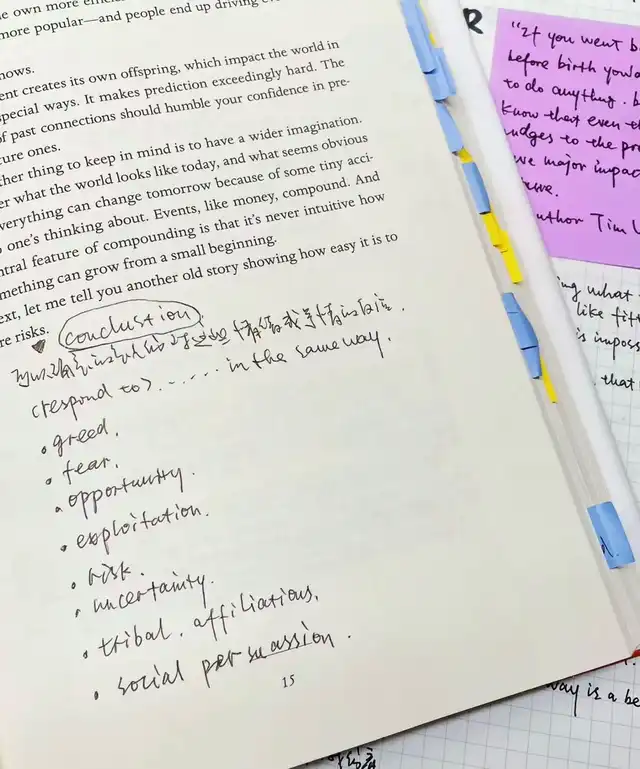 e own more effici
more popular—and people end up driving eve
nows.
ent creates its own offspring, which impact the world in
special ways. It makes prediction exceedingly hard. The
of past connections should humble your confidence in pre-
ture ones.
ther thing to keep in mind is to have a wider imagination.
er what the world looks like today, and what seems obvious
everything can change tomorrow because of some tiny acci-
o one's thinking about. Events, like money, compound. And
ntral feature of compounding is that it's never intuitive how
mething can grow from a small beginning.
ext, let me tell you another old story showing how easy it is to
re risks.
conclustion
(respond to) ...... in the same way.
• greed.
• fear.
• opportunity.
• exploitation.
• risk.
• uncertainty.
• tribal. affiliations.
• social persuassion.
15
R
"If you went b
before birth you'd
to do anything. b
know that even th
nudges to the pr
ve major impac
uthor Tim U
ng what i
like fift
is imposs
that
way is a be